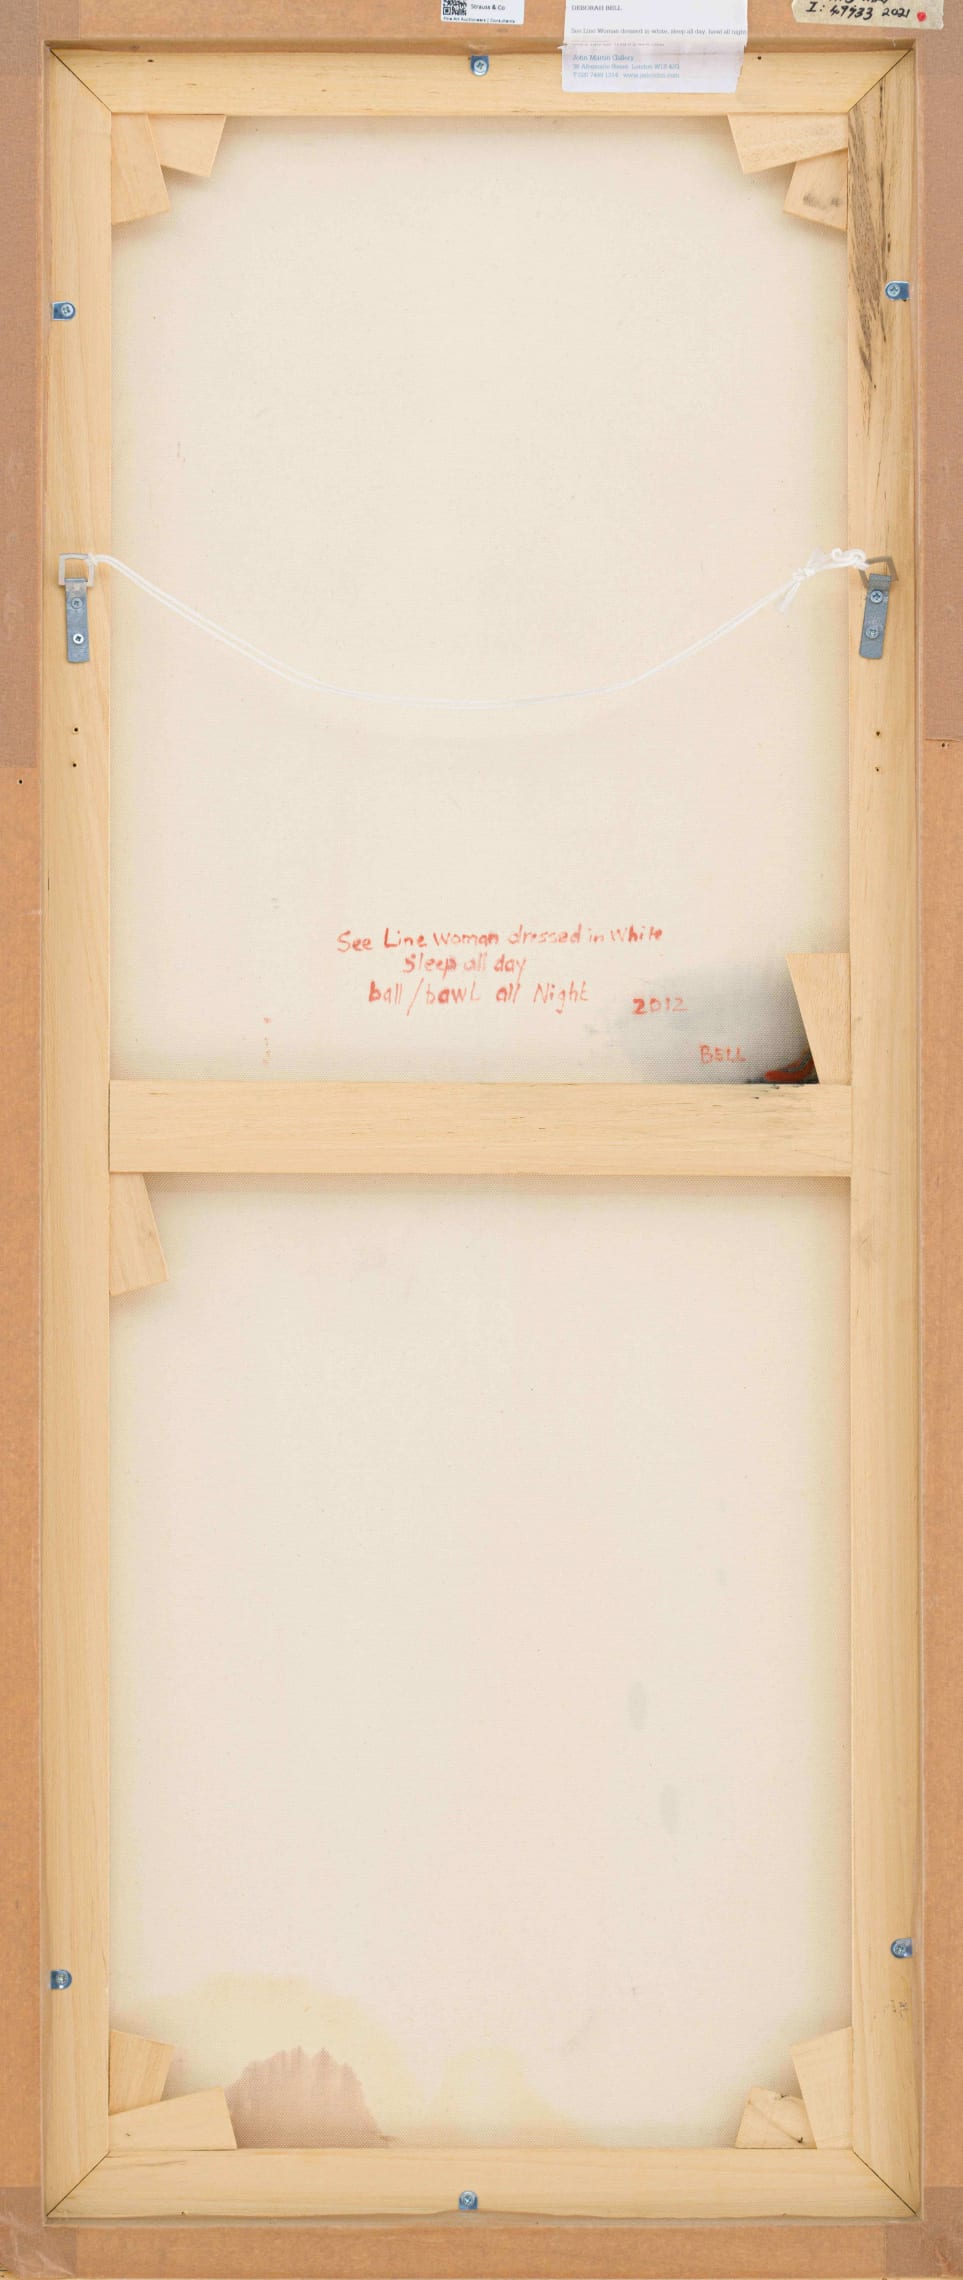 Strauss & Co
Fine Art Auctioneers | Consultants
DEBORAH BELL
See Line Woman dressed in white, sleep all day, bawl all night
John Martin Gallery
38 Albemarle Street London W1S 4JG
T 020 7499 1314 www.jmlondon.com
I: 49933 2021
See Line Woman dressed in White
Sleep all day
ball/bawl all Night
2012
BELL